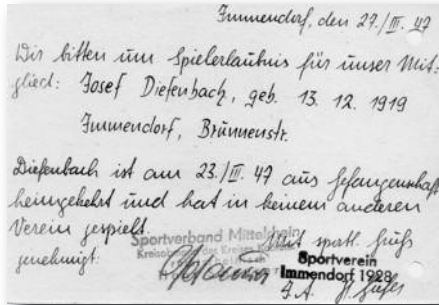 Immendorf, den 27./III. 47
Wir bitten um Spielerlaubnis für unser Mit-
glied: Josef Diefenbach, geb. 13. 12. 1919
Immendorf, Brunnenstr.
Diefenbach ist am 23./III. 47 aus Gefangenschaft
heimgekehrt und hat in keinem anderen
Verein gespielt.
Sportverband Mittelrhein
Mit sportl. Gruß
genehmigt:
Sportverein
Immendorf 1928
I. A.